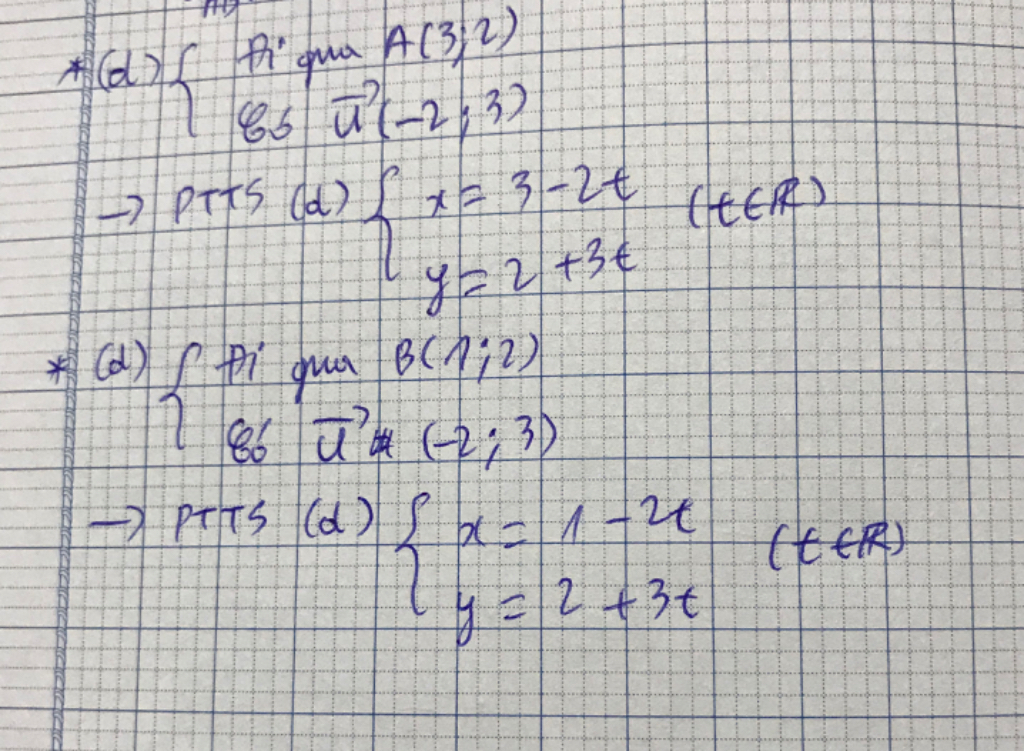 * (d) { Đi qua A(3;2)
Có u⃗(-2;3)
→ PTTS (d) { x = 3 - 2t (t∈R)
y = 2 + 3t
* (d) { Đi qua B(1;2)
Có u⃗ (-2;3)
→ PTTS (d) { x = 1 - 2t (t∈R)
y = 2 + 3t